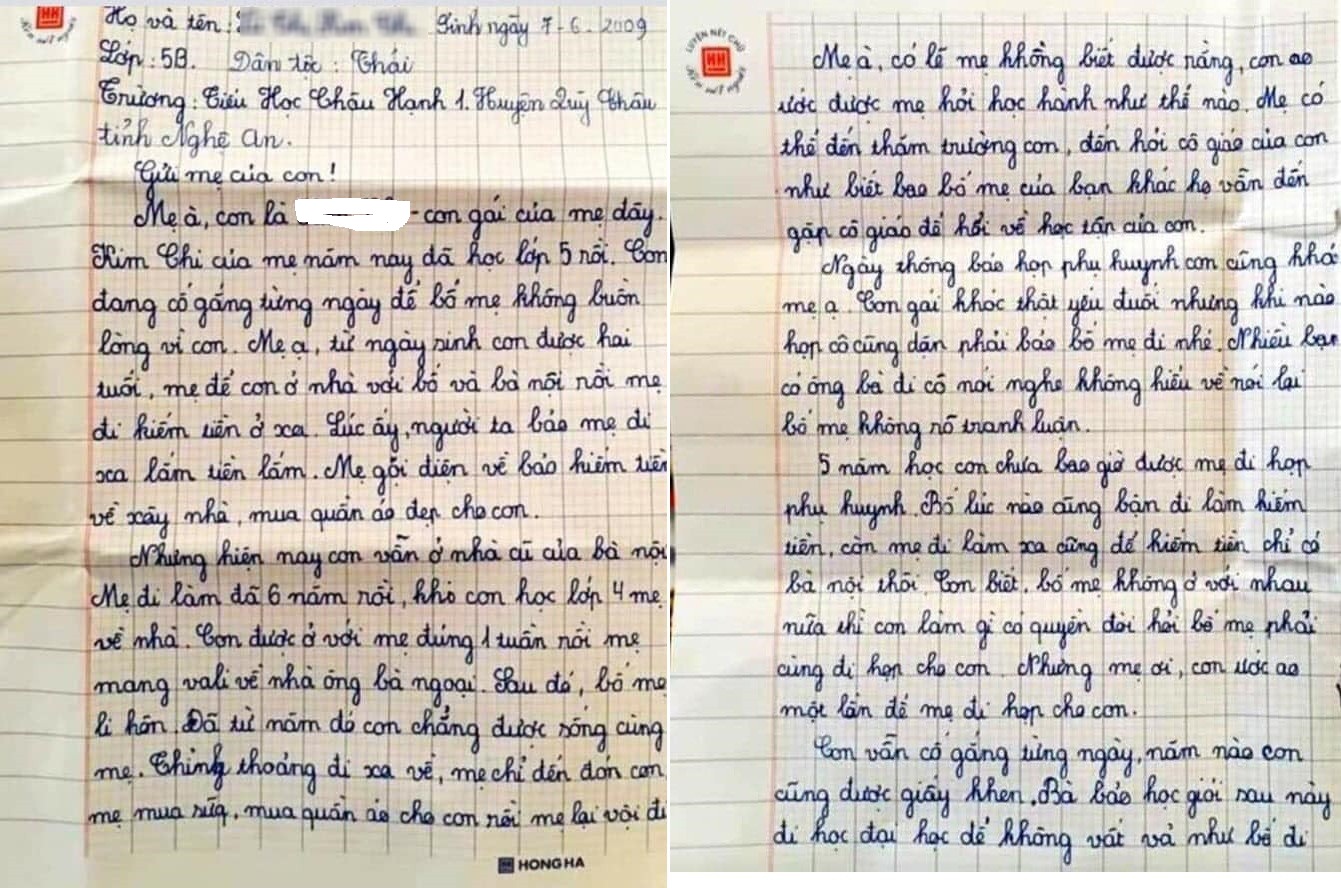 Họ và tên: Sinh ngày 7-6. 2009
Lớp: 5B. Dân tộc: Thái
Trường: Tiểu Học Châu Hạnh 1. Huyện Quỳ Châu
tỉnh Nghệ An.
Gửi mẹ của con!
Mẹ à, con là - con gái của mẹ đây.
Kim Chi của mẹ năm nay đã học lớp 5 rồi. Con
đang cố gắng từng ngày để bố mẹ không buồn
lòng vì con. Mẹ ạ, từ ngày sinh con được hai
tuổi, mẹ để con ở nhà với bố và bà nội rồi mẹ
đi kiếm tiền ở xa. Lúc ấy, người ta bảo mẹ đi
xa lắm tiền lắm. Mẹ gọi điện về bảo kiếm tiền
về xây nhà, mua quần áo đẹp cho con.
Nhưng hiện nay con vẫn ở nhà cũ của bà nội
Mẹ đi làm đã 6 năm rồi, khi con học lớp 4 mẹ
về nhà. Con được ở với mẹ đúng 1 tuần rồi mẹ
mang vali về nhà ông bà ngoại. Sau đó, bố mẹ
li hôn. Đã từ năm đó con chẳng được sống cùng
mẹ. Thỉnh thoảng đi xa về, mẹ chỉ đến đón con
mẹ mua sữa, mua quần áo cho con rồi mẹ lại vội đi
HONG HA
LUYỆN NÉT CHỮ
RÈN NẾT NGƯỜI
Mẹ à, có lẽ mẹ không biết được rằng, con ao
ước được mẹ hỏi học hành như thế nào. Mẹ có
thể đến thăm trường con, đến hỏi cô giáo của con
như biết bao bố mẹ của bạn khác họ vẫn đến
gặp cô giáo để hỏi về học tập của con.
Ngày thông báo họp phụ huynh con cũng khóc
mẹ ạ. Con gái khóc thật yếu đuối nhưng khi nào
họp cô cũng dặn phải bảo bố mẹ đi nhé. Nhiều bạn
có ông bà đi cô nói nghe không hiểu về nói lại
bố mẹ không rõ tranh luận.
5 năm học con chưa bao giờ được mẹ đi họp
phụ huynh. Bố lúc nào cũng bận đi làm kiếm
tiền, còn mẹ đi làm xa cũng để kiếm tiền chỉ có
bà nội thôi. Con biết, bố mẹ không ở với nhau
nữa thì con làm gì có quyền đòi hỏi bố mẹ phải
cùng đi họp cho con. Nhưng mẹ ơi, con ước ao
một lần để mẹ đi họp cho con.
Con vẫn cố gắng từng ngày, năm nào con
cũng được giấy khen. Bà bảo học giỏi sau này
đi học đại học để không vất vả như bố đi